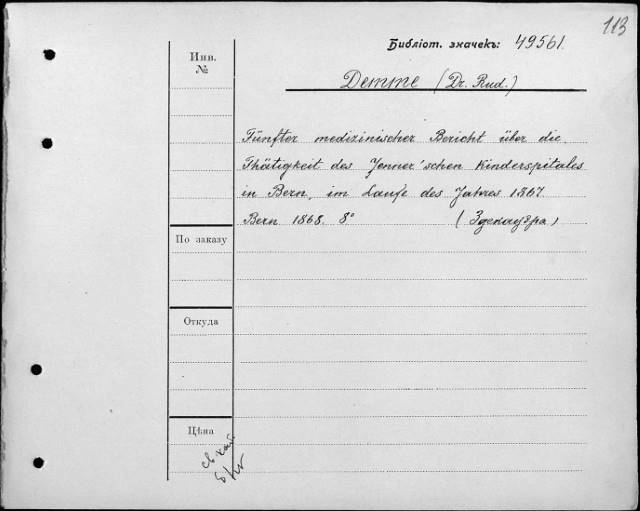 113
Библіот. значекъ: 49561.
Инв. №
Demme (Dr. Rud.)
Fünfter medizinischer Bericht über die
Thätigkeit des Jenner'schen Kinderspitales
in Bern, im Laufe des Jahres 1867.
Bern 1868. 8°
По заказу
Откуда
Цѣна